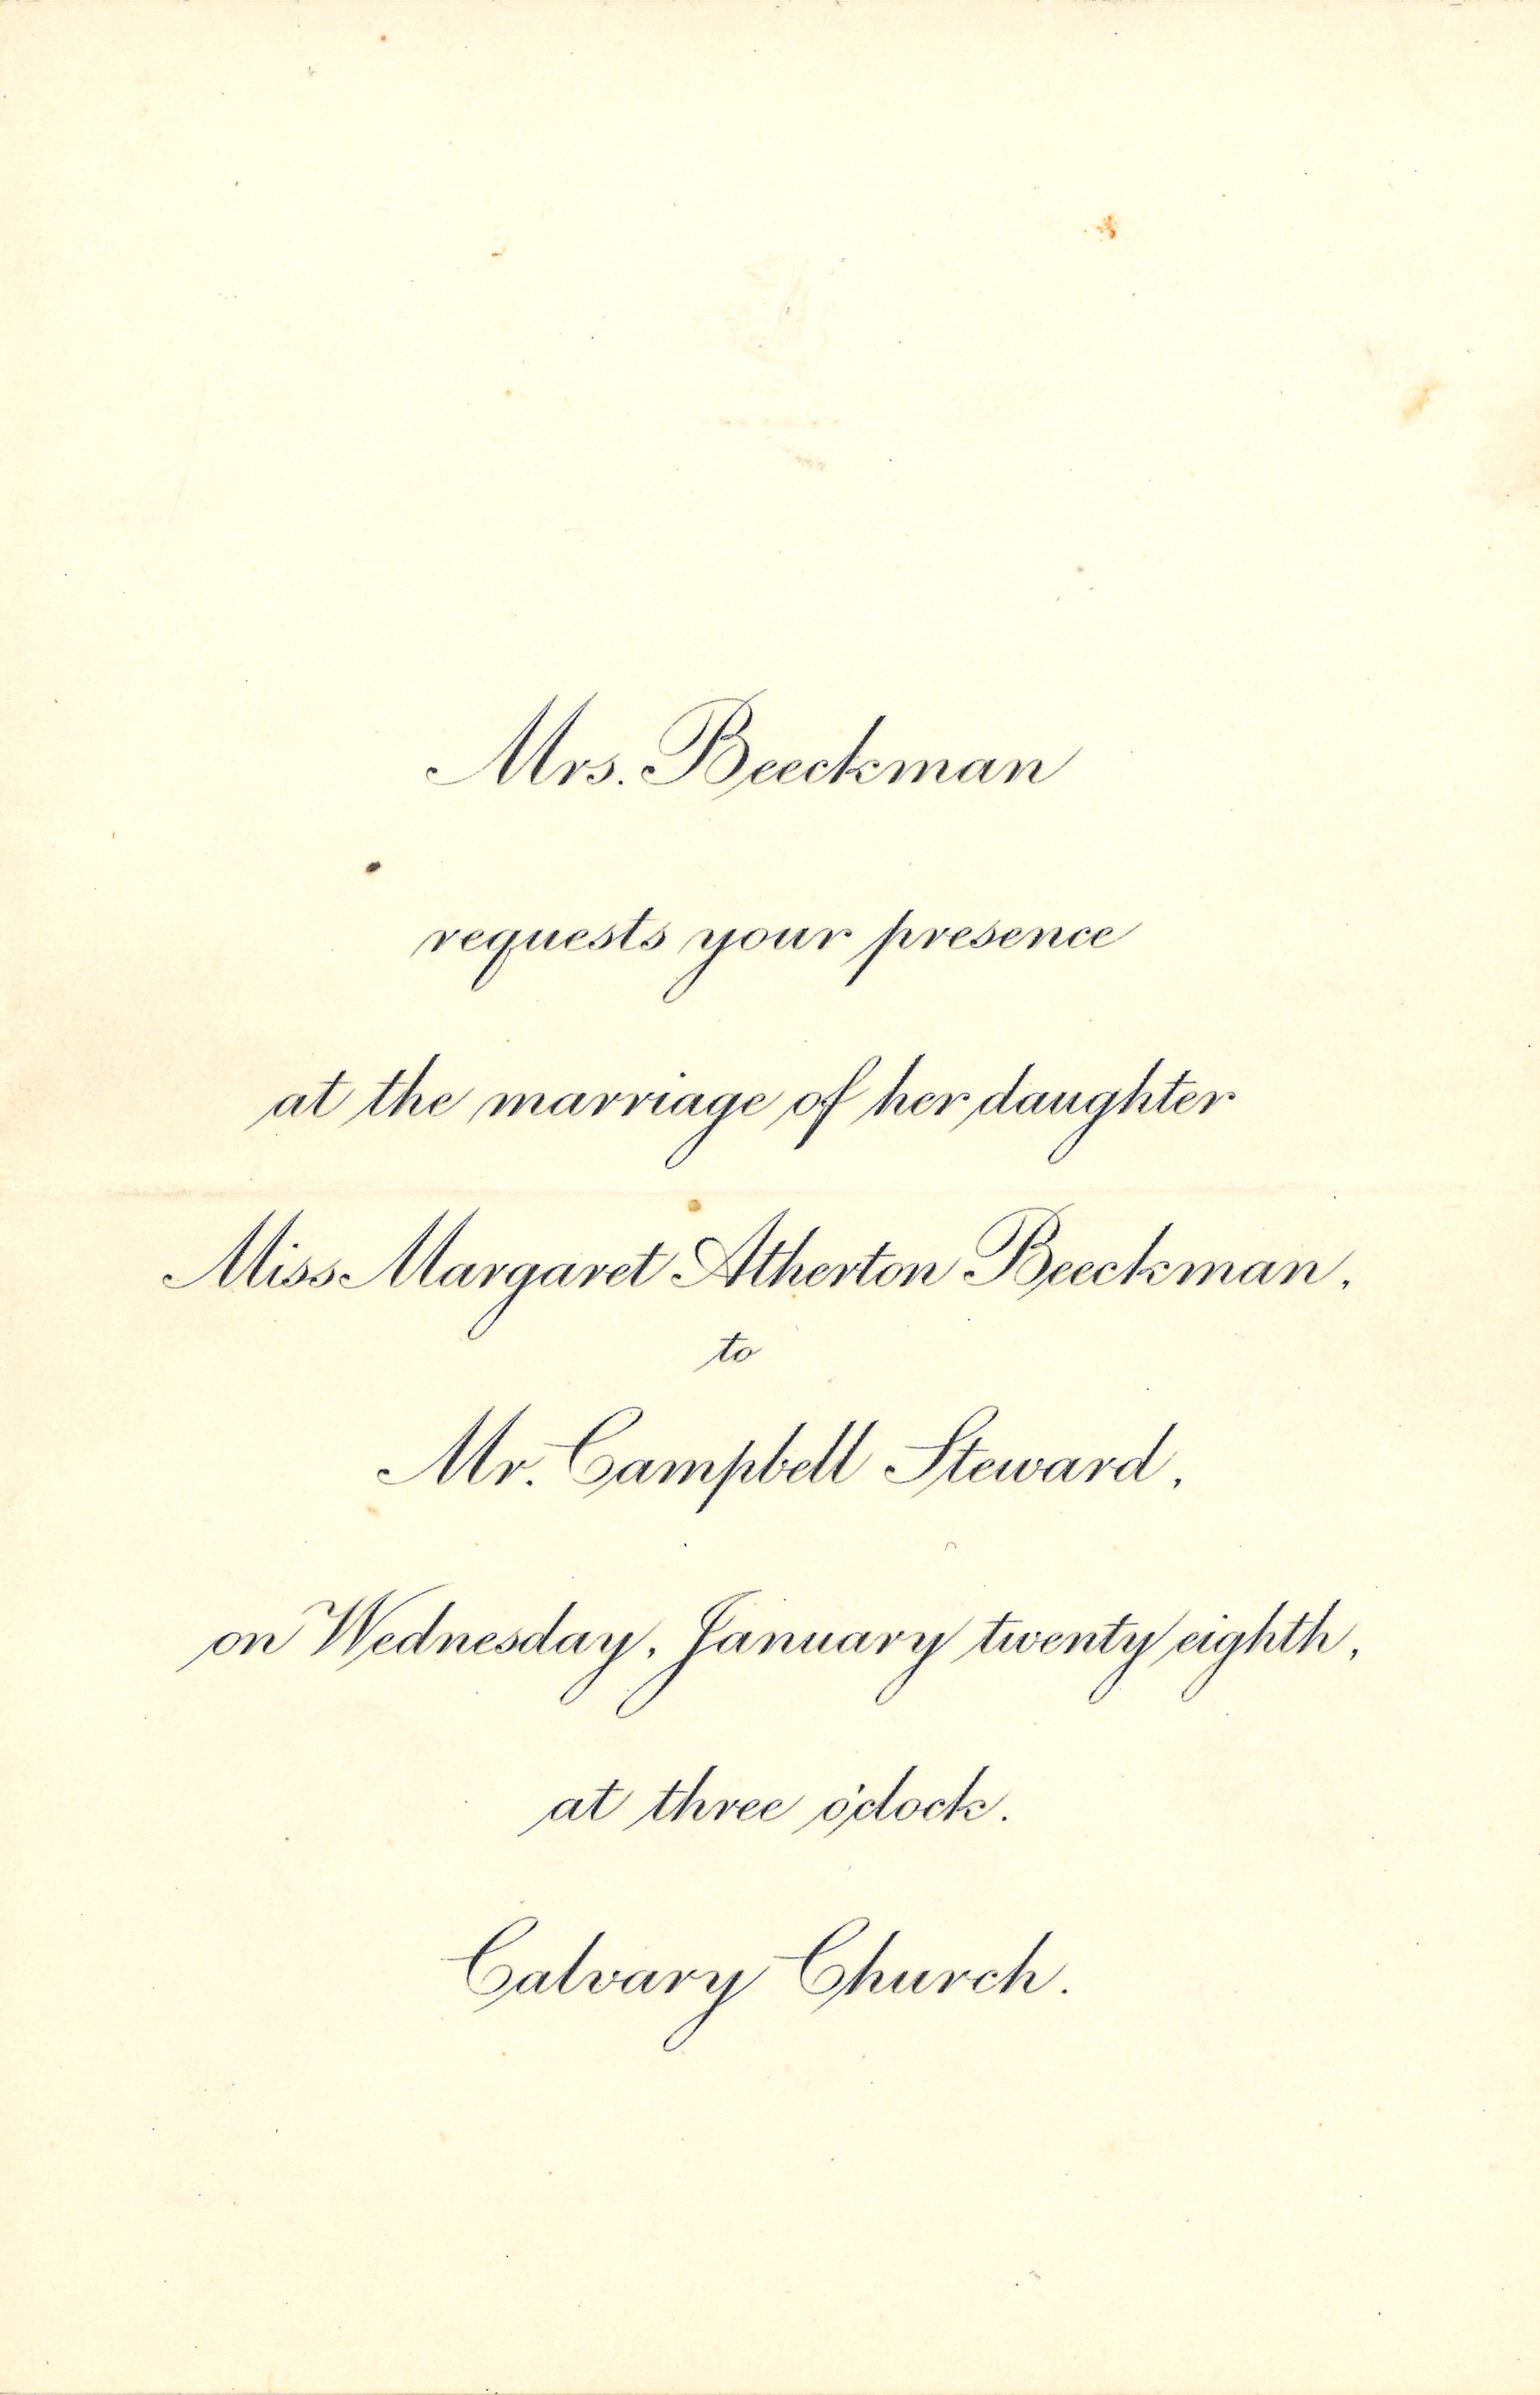 Mrs. Beeckman
requests your presence
at the marriage of her daughter
Miss Margaret Atherton Beeckman,
to
Mr. Campbell Steward,
on Wednesday, January twenty eighth,
at three o'clock.
Calvary Church.